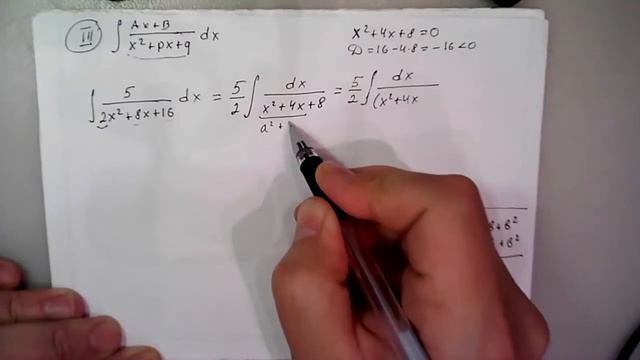 III ∫ Ax+B / x²+px+q dx
x²+4x+8=0
D=16-4·8=-16<0
∫ 5 / 2x²+8x+16 dx = 5/2 ∫ dx / x²+4x+8 = 5/2 ∫ dx / (x²+4x
a²+
+8²
+8²